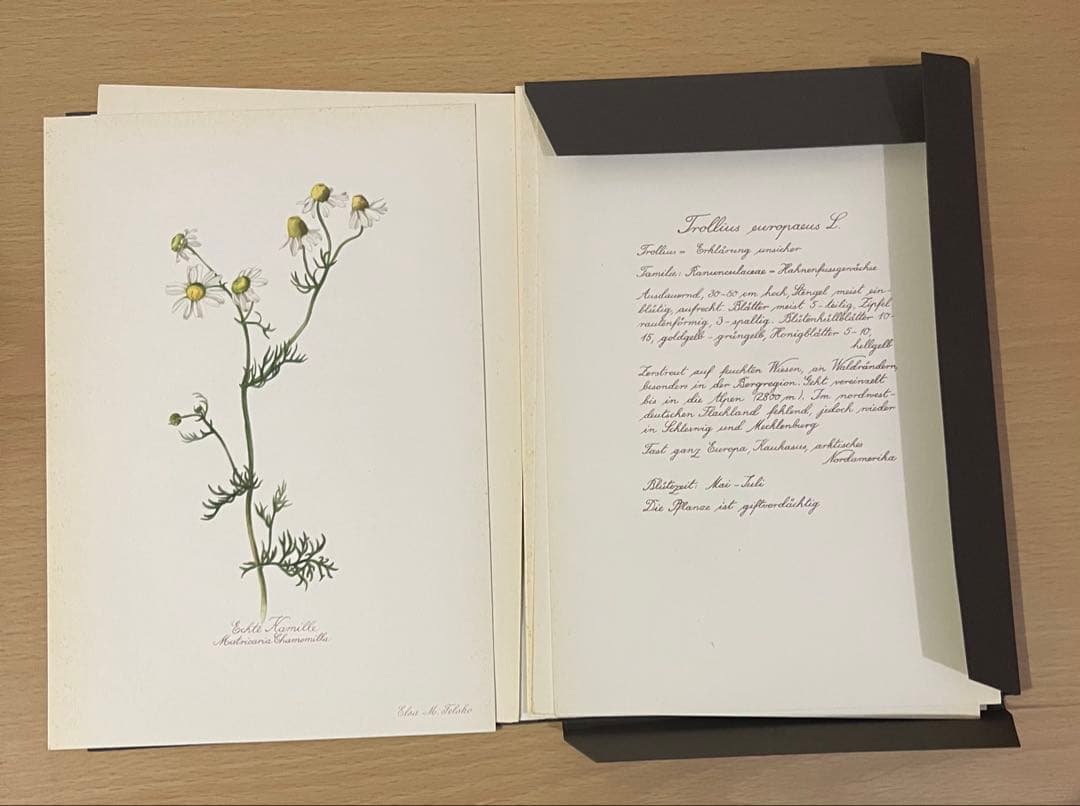 Echte Kamille
Matricaria Chamomilla
Elsa M. Felsko
Trollius europaeus L.
Trollius = Erklärung unsicher
Familie: Ranunculaceae = Hahnenfussgewächse
Ausdauernd, 30-50 cm hoch, Stengel meist ein-
blütig, aufrecht. Blätter meist 5-teilig, Zipfel
rautenförmig, 3-spaltig. Blütenhüllblätter 10-
15, goldgelb - grüngelb, Honigblätter 5-10,
hellgelb
Zerstreut auf feuchten Wiesen, an Waldrändern,
besonders in der Bergregion. Geht vereinzelt
bis in die Alpen (2800 m). Im nordwest-
deutschen Flachland fehlend, jedoch wieder
in Schleswig und Mecklenburg
Fast ganz Europa, Kaukasus, arktisches
Nordamerika
Blütezeit: Mai - Juli
Die Pflanze ist giftverdächtig